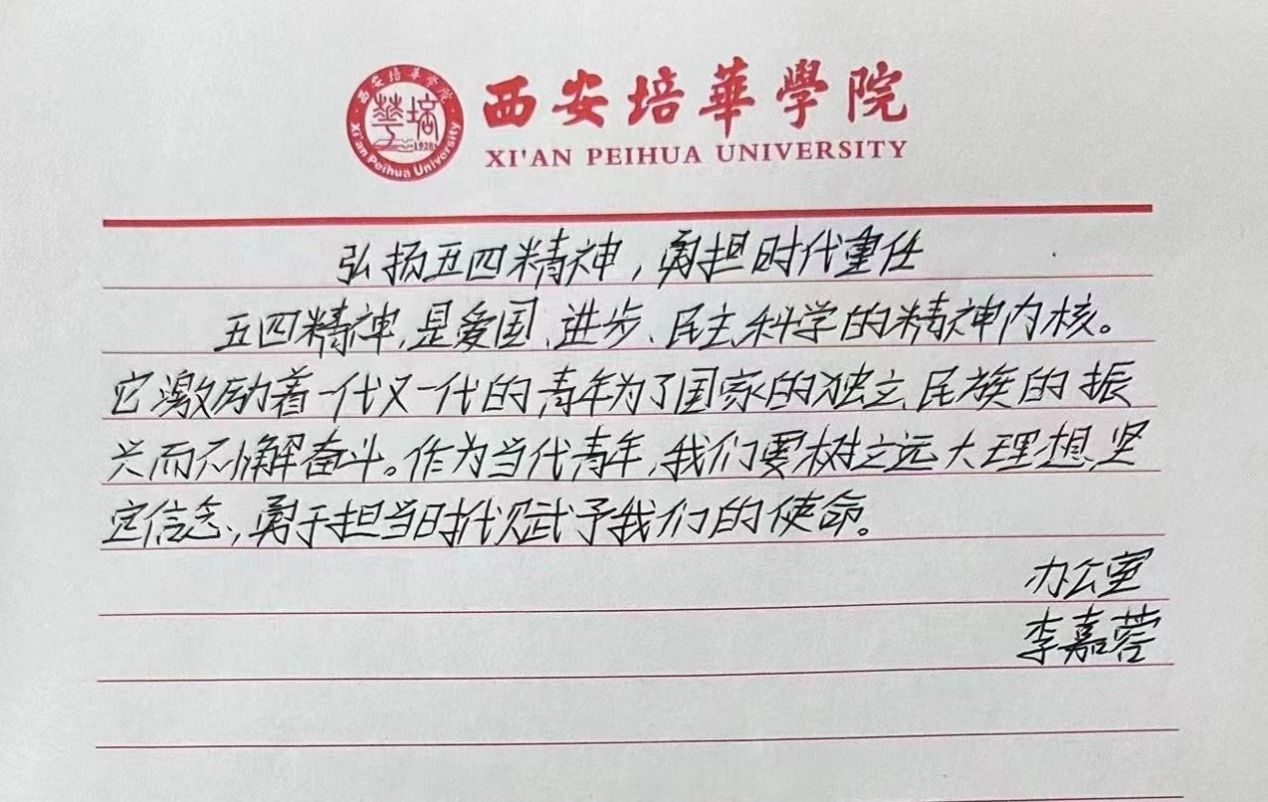 西安培華學院
XI'AN PEIHUA UNIVERSITY
西安培华学院
華培
1928
Xi'an Peihua University
弘扬五四精神，勇担时代重任
五四精神,是爱国、进步、民主、科学的精神内核。
它激励着一代又一代的青年为了国家的独立、民族的振
兴而不懈奋斗。作为当代青年,我们要树立远大理想,坚
定信念,勇于担当时代赋予我们的使命。
办公室
李嘉蓉